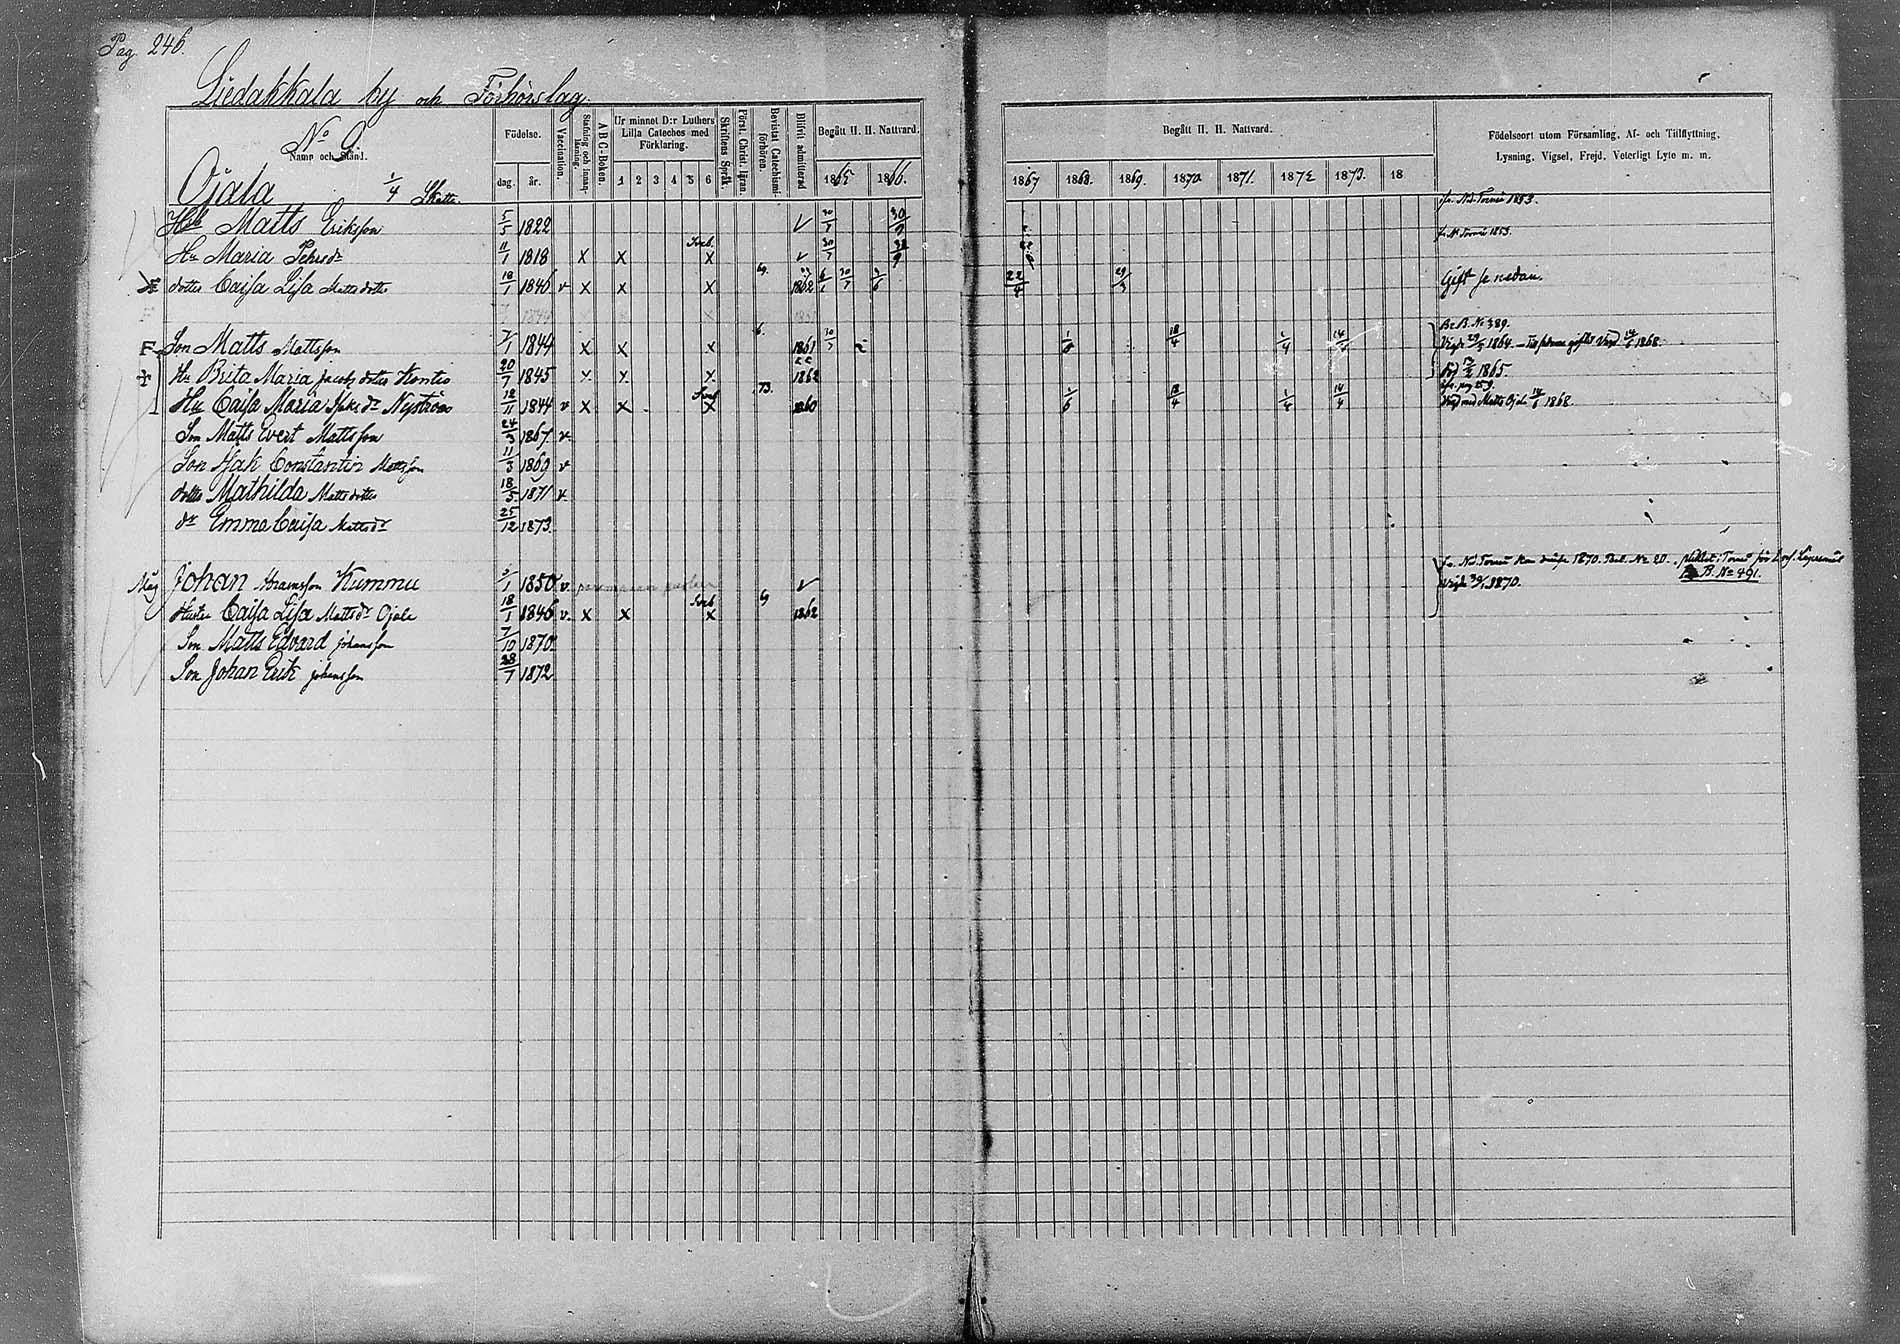 Pag. 246.
Liedakkala by och Förhörslag.
No 9
Namn och Stånd.
Födelse.
dag. år.
Vaccination.
Stafning och innan-läsning.
A B C-Boken.
Ur minnet D:r Luthers Lilla Cateches med Förklaring.
1 2 3 4 5 6
Skriftens Språk.
Först. Christ. lären.
Bevistat Catechismi-förhören.
Blifvit admitterad
Begått H. H. Nattvard.
1865 1866.
Begått H. H. Nattvard.
1867 1868. 1869. 1870 1871. 1872 1873. 18
Födelseort utom Församling, Af- och Tillflyttning,
Lysning, Vigsel, Frejd, Veterligt Lyte m. m.
Ojala 1/4 Skatte.
Matts Eriksson 5/5 1822 30/7 30/9 fr. Nd. Torneå 1853.
Hu Maria Pehrsdr 11/1 1818 x x x 30/7 fr. Nd Torneå 1853.
dotter Caisa Lisa Mattsdotter 18/1 1846 v x x x 1862 30/7 22/4 29/3 Gift se nedan.
Br. B. No 389.
F Son Matts Mattsson 7/1 1844 x x x 1861 30/7 1/6 18/4 1/4 14/4 1864. 14/6 1868.
Hu Brita Maria Jacobsdotter Kontio 20/7 1845 x x x 1862 1865.
Hu Caisa Maria dr Nyström 12/11 1844 v x x x 73. 1860 1/6 18/4 1/4 14/4 Vigd med Matts Ojala 14/6 1868.
Son Matts Evert Mattsson 24/3 1867 v
Son Isak Constantin Mattsson 11/3 1869 v
dotter Mathilda Mattsdotter 18/5 1871 v
dr Emma Caisa Mattsdr 25/12 1873.
Måg Johan Abramsson Kummu 1850 v fr. Nd. Torneå 1870. No 20.
Br. B. No 491.
1870.
Hustru Caisa Lisa Mattsdr Ojala 18/1 1846 v x x x 1862
Son Matts Edvard Johansson 7/10 1870
Son Johan Erik Johansson 28/7 1872